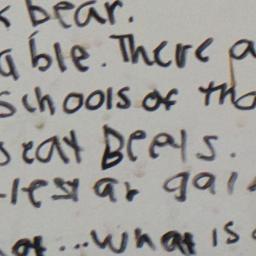 bear.
able. There a
schools of tha
seat Beels.
lest ar gai
at...what is